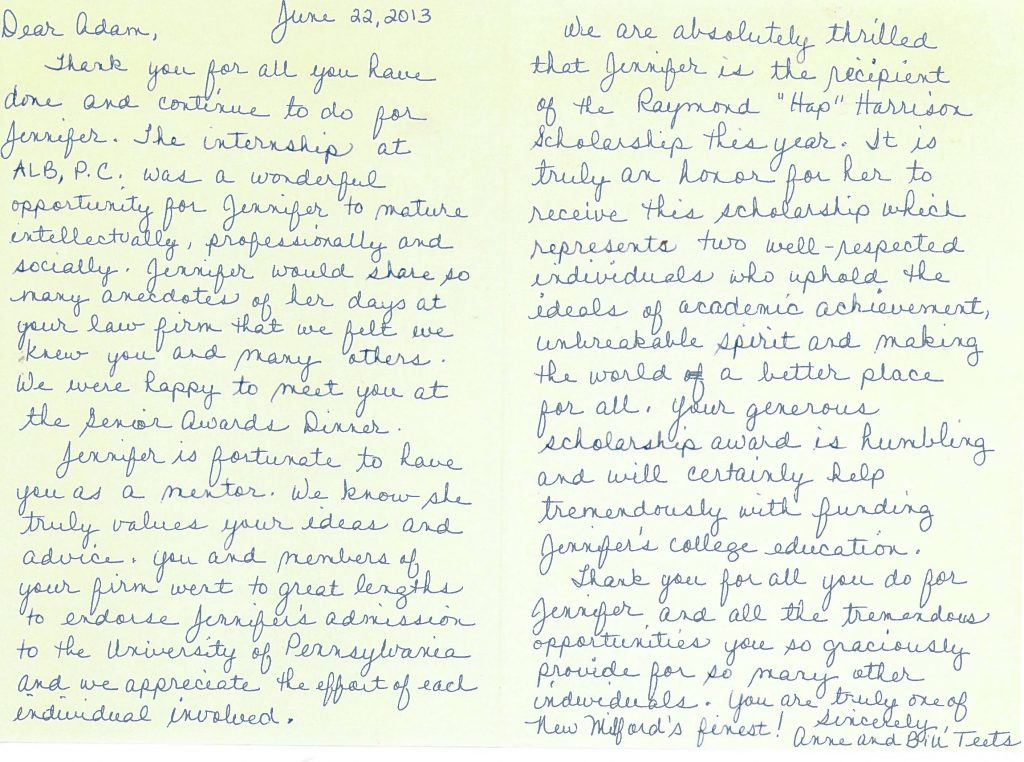 June 22, 2013
Dear Adam,
Thank you for all you have
done and continue to do for
Jennifer. The internship at
ALB, P.C. was a wonderful
opportunity for Jennifer to mature
intellectually, professionally and
socially. Jennifer would share so
many anecdotes of her days at
your law firm that we felt we
knew you and many others.
We were happy to meet you at
the Senior Awards Dinner.
Jennifer is fortunate to have
you as a mentor. We know she
truly values your ideas and
advice. You and members of
your firm went to great lengths
to endorse Jennifer's admission
to the University of Pennsylvania
and we appreciate the effort of each
individual involved.
We are absolutely thrilled
that Jennifer is the recipient
of the Raymond "Hap" Harrison
Scholarship this year. It is
truly an honor for her to
receive this scholarship which
represents two well-respected
individuals who uphold the
ideals of academic achievement,
unbreakable spirit and making
the world a better place
for all. Your generous
scholarship award is humbling
and will certainly help
tremendously with funding
Jennifer's college education.
Thank you for all you do for
Jennifer and all the tremendous
opportunities you so graciously
provide for so many other
individuals. You are truly one of
New Milford's finest!
Sincerely,
Anne and Bill Teets